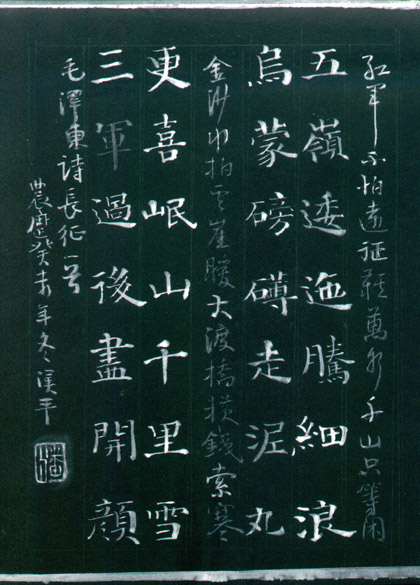 紅軍不怕遠征難萬水千山只等閑
五嶺逶迤騰細浪
烏蒙磅礴走泥丸
金沙水拍云崖暖大渡橋横鐵索寒
更喜岷山千里雪
三軍過後盡開顔
毛澤東詩長征一首
農曆癸未年冬漢平